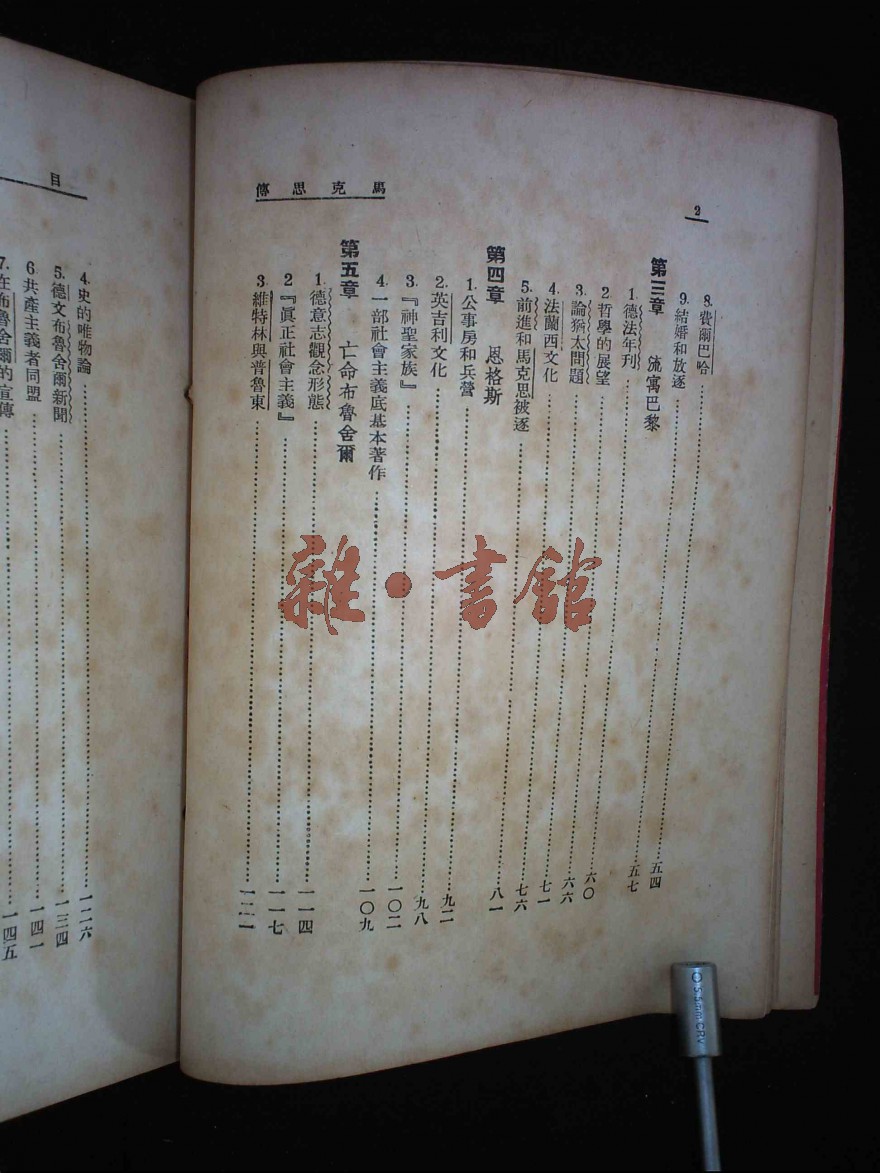 2
馬克思傳
8. 費爾巴哈……五四
9. 結婚和放逐……五七
第三章 流寓巴黎
1. 德法年刊……六〇
2. 哲學的展望……六六
3. 論猶太問題……七一
4. 法蘭西文化……七六
5. 前進和馬克思被逐……八一
第四章 恩格斯
1. 公事房和兵營……九二
2. 英吉利文化……九八
3. 『神聖家族』……一〇二
4. 一部社會主義底基本著作……一〇九
第五章 亡命布魯舍爾
1. 德意志觀念形態……一一四
2 『眞正社會主義』……一一七
3. 維特林與普魯東……一二一
目
4. 史的唯物論……一二六
5. 德文布魯舍爾新聞……一三四
6. 共產主義者同盟……一四一
7. 在布魯舍爾的宣傳……一四五
雜·書館
5.5mm CRV